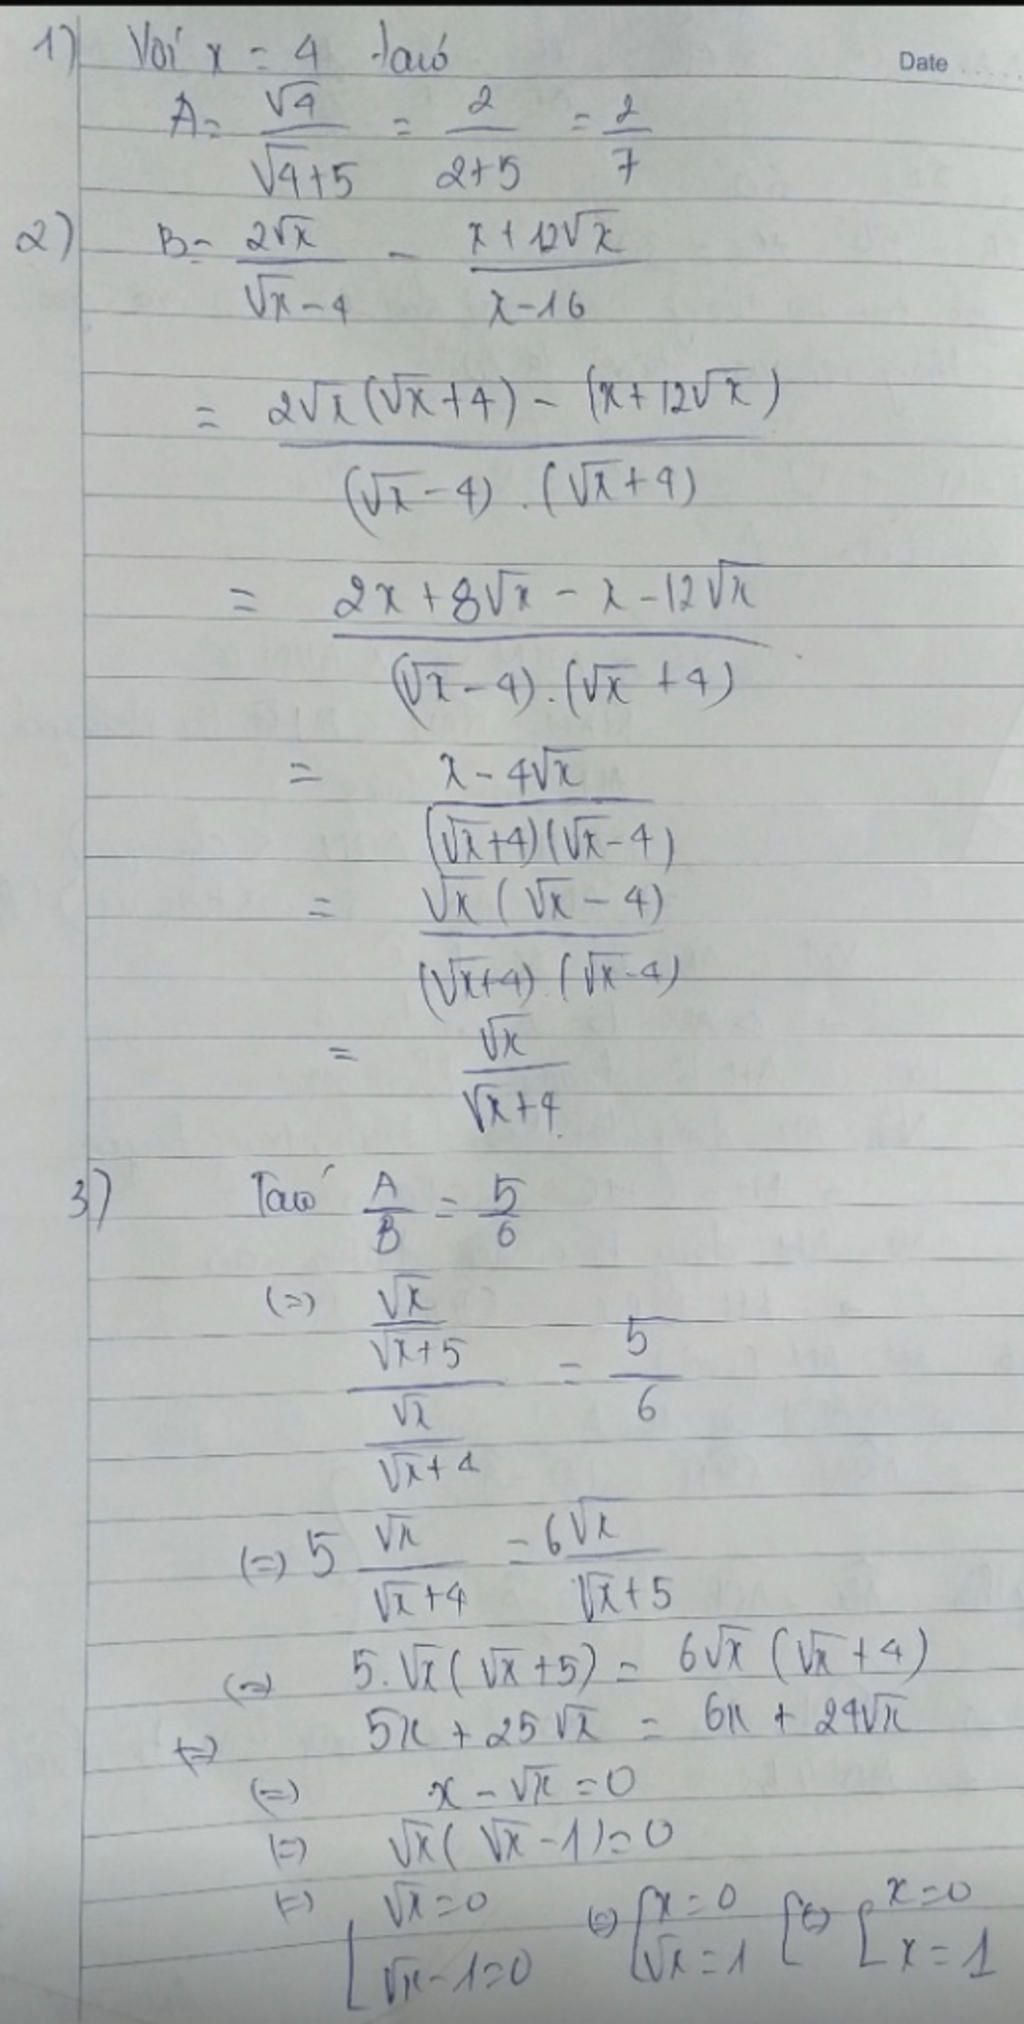 Date
1) Với x = 4 ta có
A = √4/(√4+5) = 2/(2+5) = 2/7
2) B = 2√x/(√x-4) - (x+12√x)/(x-16)
= (2√x(√x+4) - (x+12√x))/((√x-4).(√x+4))
= (2x+8√x-x-12√x)/((√x-4).(√x+4))
= (x-4√x)/((√x+4)(√x-4))
= (√x(√x-4))/((√x+4)(√x-4))
= √x/(√x+4)
3) Ta có A/B = 5/6
(=) (√x/(√x+5))/(√x/(√x+4)) = 5/6
(=) 5 √x/(√x+4) = 6√x/(√x+5)
(=) 5.√x(√x+5) = 6√x(√x+4)
(=) 5x + 25√x = 6x + 24√x
(=) x - √x = 0
(=) √x(√x-1)=0
(=) [√x=0 (=) [x=0 [(=) [x=0
√x-1=0 √x=1 x=1